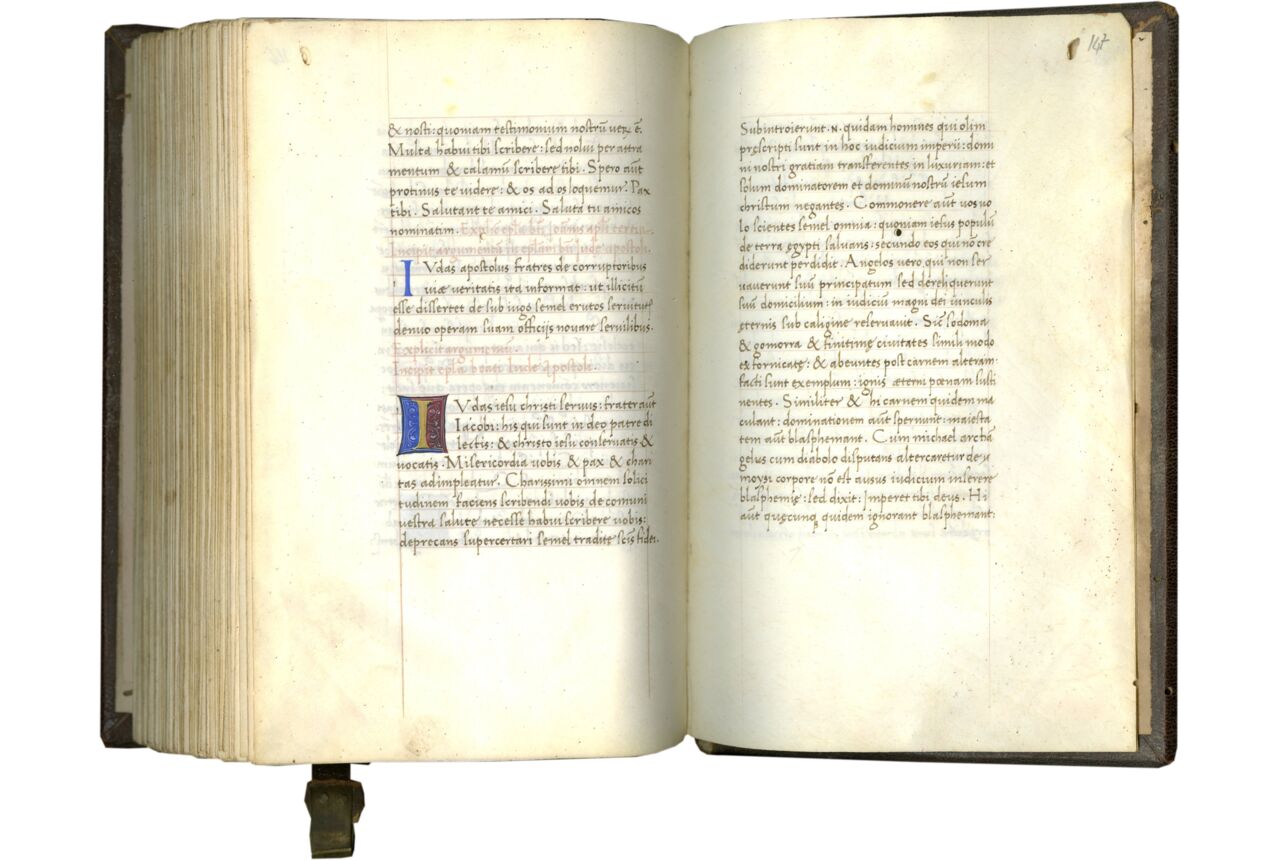 & nosti: quoniam testimonium nostrũ ver ẽ.
Multa habui tibi scribere: sed nolui per atra
mentum & calamũ scribere tibi. Spero aũt
protinus te videre: & os ad os loquemur. Pax
tibi. Salutant te amici. Saluta tu amicos
nominatim. Explic epła bti Joãnis apłi tertia.
Incipit argumentũ in epłam bti Jude apostoli.
IVdas apostolus fratres de corruptoribus
uiæ veritatis ita informat: ut illicitũ
esse dissertet de sub iugo semel erutos seruitutis
denuo operam suam officijs nouare seruilibus.
Explicit argumentũ.
Incipit epła beati Jude Apostoli.
IVdas iesu christi seruus: frater aũt
Iacobi: his qui sunt in deo patre di
lectis: & christo iesu conseruatis &
uocatis. Misericordia uobis & pax & chari
tas adimpleatur. Charissimi omnem solici
tudinem faciens scribendi uobis de comuni
uestra salute necesse habui scribere uobis:
deprecans supercertari semel traditę scis fidei.
147
Subintroierunt .N. quidam homines qui olim
pręscripti sunt in hoc iudicium impii: domi
ni nostri gratiam transferentes in luxuriam: et
solum dominatorem et domınũ nostrũ iesum
christum negantes. Commonere aũt uos uo
lo scientes semel omnia: quoniam iesus populũ
de terra egypti saluans: secundo eos qui nõ cre
diderunt perdidit. Angelos vero qui non ser
uauerunt suũ principatum sed dereliquerunt
suũ domicilium: in iudiciũ magni dei uinculis
ęternis sub caligine reseruauit. Sic sodoma
& gomorra & finitimę ciuitates simili modo
exfornicatę: & abeuntes post carnem alteram:
facti sunt exemplum: ignis æterni pœnam susti
nentes. Similiter & hi carnem quidem ma
culant: dominationem aũt spernunt: maiesta
tem aũt blasphemant. Cum michael archã
gelus cum diabolo disputans altercaretur de
moysi corpore nõ est ausus iudicium inserere
blasphemię: sed dixit: Imperet tibi deus. Hi
aũt quęcunq quidem ignorant blasphemant: